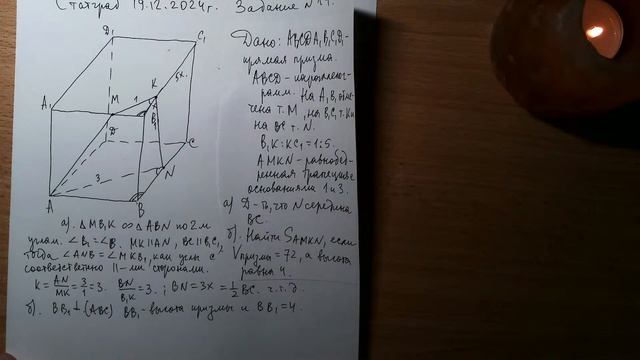 Статград 19.12.2024г. Задание №14.
D₁
C₁
K
5x
1
M
B₁
A₁
D
C
3
N
A
B
Дано: ABCDA₁B₁C₁D₁ -
прямая призма.
ABCD - параллелог-
рамм. На A₁B₁ отме-
чена т. M, на B₁C₁ т. K и
на BC т. N.
B₁K : KC₁ = 1:5.
AMKN - равнобед-
ренная трапеция с
основаниями 1 и 3.
а) Д-ть, что N середина
BC.
б). Найти S AMKN, если
V призмы = 72, а высота
равна 4.
а). △MB₁K ∞ △ABN по 2-м
углам. ∠B₁=∠B. MK||AN, BC||B₁C₁,
тогда ∠ANB = ∠MKB₁, как углы с
соответственно ||-ми сторонами.
K = AN/MK = 3/1 = 3. BN/B₁K = 3. ; BN = 3x = 1/2 BC. ч.т.д.
б). BB₁ ⊥ (ABC) BB₁ - высота призмы и BB₁ = 4.